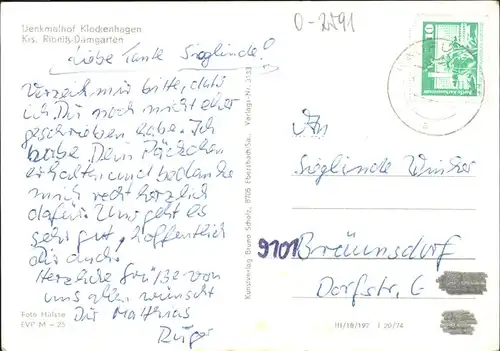 Denkmalhof Klockenhagen
Krs. Ribnitz-Damgarten
0-2591
Liebe Tante Sieglinde!
Verzeih mir bitte, daß
ich Dir noch nicht eher
geschrieben habe. Ich
habe Dein Päckchen
erhalten und bedanke
mich recht herzlich
dafür. Uns geht es
sehr gut, hoffentlich
dir auch.
Herzliche Grüße von
uns allen wünscht
Dir Matthias
Foto Hülsse
EVP M -25
Kunstverlag Bruno Scholz, 8705 Ebersbach/Sa. Verlags-Nr. 3153
10
An
Sieglinde Winkler
9101 Bräunsdorf
Dorfstr. 6
III/18/197 I 20/74